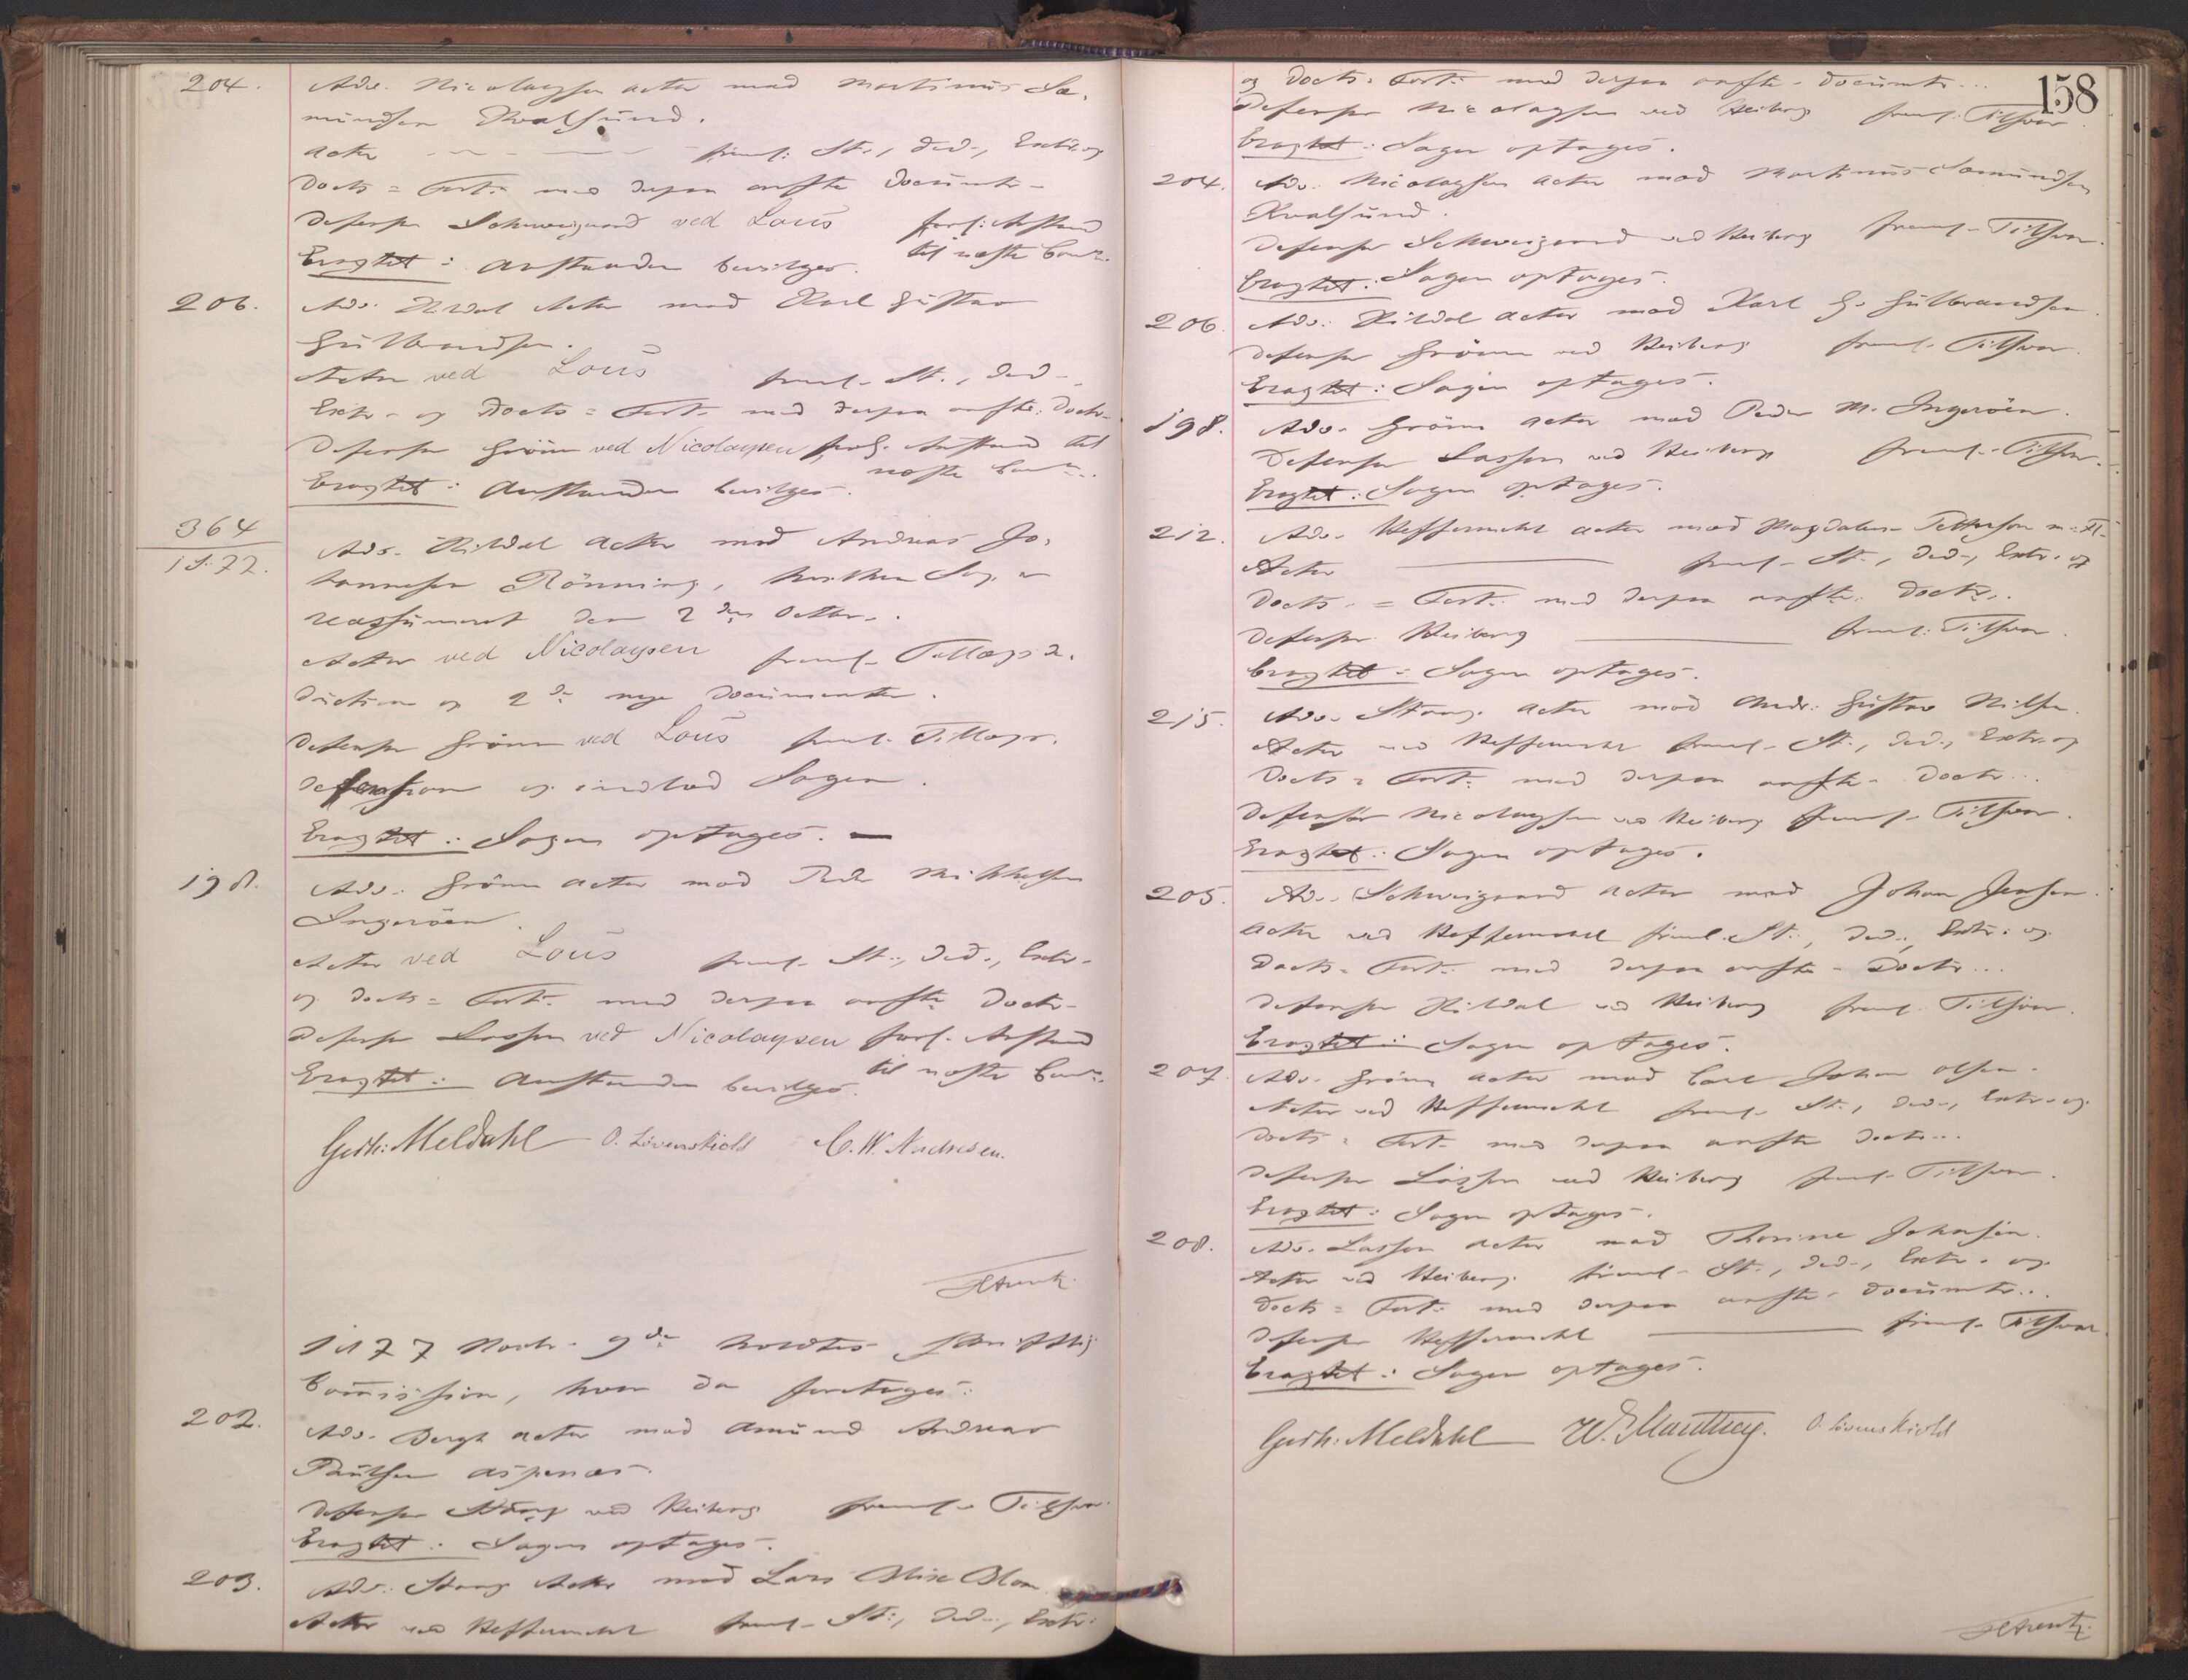 204. Adv. Nicolaysen actor mod Martinus Sa-
mundsen Kvalsund.
Actor — — — freml: St., Ded-, Extr. og
Docts = Fort. med derpaa anførte Documt-
Defensor Schweigaard ved Lous forl: Anstand
til næste Comn.
Eragtet: Anstanden bevilges.
206. Adv. Hildal Actor mod Karl Gustav
Gulbrandsen.
Actor ved Lous freml- St., Ded-,
Extr- og Docts = Fort- med derpaa anførte Doctr-
Defensor Grönn ved Nicolaysen forl. Anstand til
næste Comn.
Eragtet: Anstanden bevilges.
364
1877. Adv. Hildal Actor mod Andreas Jo-
hannesen Rönning, hvilken Sag er
reassumeret den 2den Octbr.
Actor ved Nicolaysen freml- Tillægsde-
duction og 2de nye Documenter.
Defensor Grönn ved Lous freml- Tillægs-
defension og indlod Sagen.
Eragtet: Sagen optages. —
198. Adv. Grönn actor mod Peder Mikkelsen
Ingeröen.
Actor ved Lous freml- St., Ded., Extr-
og Docts = Fort- med derpaa anførte Doctr-
Defensor Lasson ved Nicolaysen forl- Anstand
til næste Comn.
Eragtet: Anstanden bevilges.
Gerh: Meldahl O. Lövenskiold C. W. Andresen.
1877 Novbr. 9de holdtes skriftlig
Commission, hvor da foretoges:
202. Adv. Bergh actor mod Amund Andreas
Paulsen Aspenæs.
Defensor Stang ved Heiberg freml- Tilsvar.
Eragtet: Sagen optages.
203. Adv. Stang Actor mod Lars Blom
Actor ved Heffermehl freml- St:, Ded-, Extr:
158
og Docts = Fort- med derpaa anførte Documtr...
Defensor Nicolaysen ved Heiberg freml. Tilsvar.
Eragtet: Sagen optages.
204. Adv. Nicolaysen actor mod Martinus Samundsen
Kvalsund.
Defensor Schweigaard ved Heiberg freml- Tilsvar.
Eragtet: Sagen optages.
206. Adv. Hildal actor mod Karl G. Gulbrandsen.
Defensor Grönn ved Heiberg freml- Tilsvar.
Eragtet: Sagen optages.
198. Adv. Grönn actor mod Peder M. Ingeröen.
Defensor Lasson ved Heiberg freml- Tilsvar.
Eragtet: Sagen optages.
212. Adv. Heffermehl actor mod Magdalena Pettersen m. Fl.
Actor — freml- St., Ded-, Extr. og
Docts. = Fort- med derpaa anførte Doctr..
Defensor Heiberg — freml: Tilsvar.
Eragtet: Sagen optages.
215. Adv. Stang actor mod Andr. Gustav Nilsen.
Actor ved Heffermehl freml- St., Ded., Extr. og
Docts = Fort. med derpaa anførte Doctr...
Defensor Nicolaysen ved Heiberg freml- Tilsvar.
Eragtet: Sagen optages.
205. Adv. Schweigaard actor mod Johan Jensen.
Actor ved Heffermehl freml. St., Ded., Extr. og
Docts = Fort. med derpaa anførte Doctr...
Defensor Hildal ved Heiberg freml- Tilsvar.
Eragtet: Sagen optages.
207. Adv. Grönn actor mod Carl Johan Olsen.
Actor ved Heffermehl freml- St., Ded-, Extr- og
Docts = Fort- med derpaa anførte Doctr...
Defensor Lasson ved Heiberg freml- Tilsvar.
Eragtet: Sagen optages.
208. Adv. Lasson actor mod Thorine Johansen.
Actor ved Heiberg freml- St., Ded-, Extr. og
Docts = Fort. med derpaa anførte Documtr...
Defensor Heffermehl — freml- Tilsvar.
Eragtet: Sagen optages.
Gerh: Meldahl W. S. Manthey. O. Lövenskiold